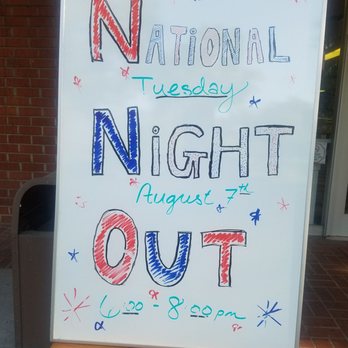 NATIONAL
Tuesday
NiGHT
August 7th
OUT
6:00 - 8:00pm